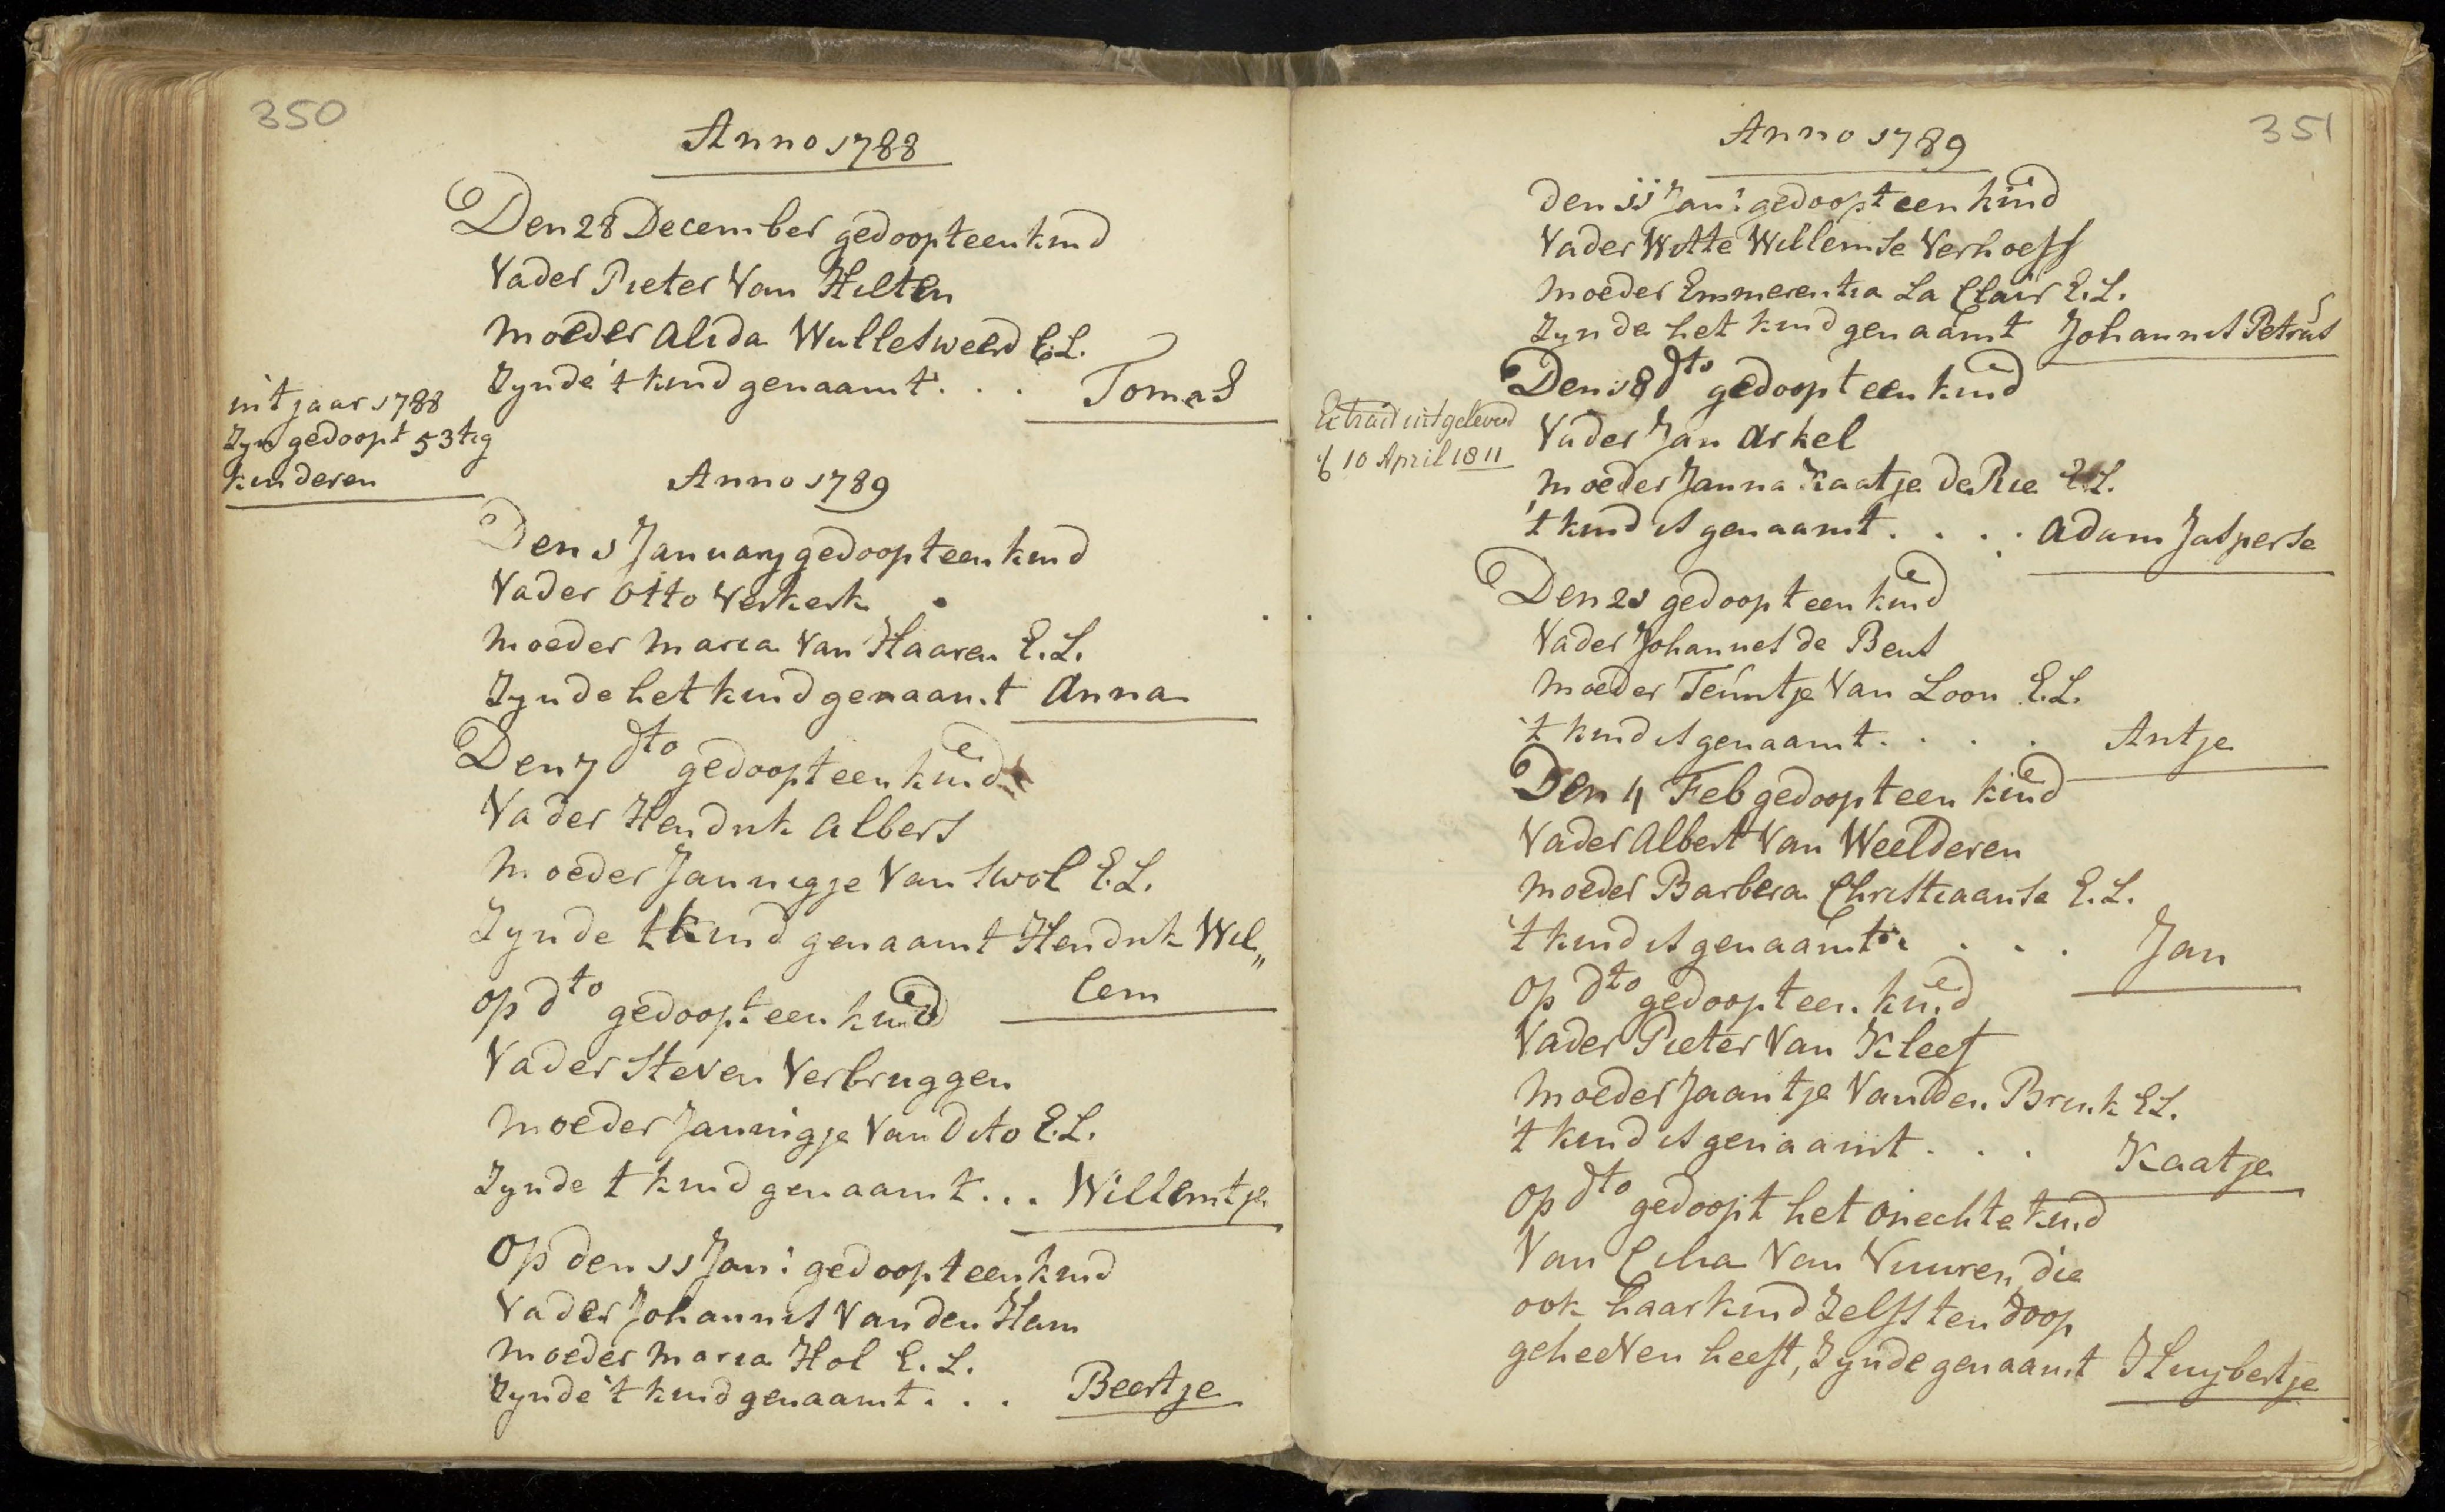 350
Anno 1788
Den 28 December gedoopt een kind
Vader Pieter Van Hilten
moeder Alida Wullesweerd E.L.
Zynde 't kind genaamt . . . Tomas
in 't jaar 1788
Zyn gedoopt 53tig
kinderen
Anno 1789
Den 1 January gedoopt een kind
Vader Otto Verkerk
moeder Maria Van Haaren E.L.
Zynde het kind genaamt Anna
Den 7 dto gedoopt een kind
Vader Hendrik Albers
moeder Jannigje Van Swol E.L.
Zynde t kind genaamt Hendrik Wil„
lem
op dto gedoopt een kind
Vader Steven Verbruggen
moeder Jannigje Van Dito E.L.
Zynde t kind genaamt . . . Willemtje
Op den 11 Jan: gedoopt een kind
Vader Johannis Van den Ham
moeder Maria Hol E.L.
Zynde 't kind genaamt . . . Beertje
351
Anno 1789
Den 11 Jan: gedoopt een kind
Vader Witte Willemse Verhoeff
moeder Emmerentia La Clair E.L.
Zynde het kind genaamt Johannis Petrus
Den 18 dto gedoopt een kind
Vader Jan Arkel
moeder Janna Kaatje de Rie E.L.
't kind is genaamt . . . . Adam Jasperse
uitgeleverd
10 April 1811
Den 21 gedoopt een kind
Vader Johannes de Beus
moeder Teuntje Van Loon E.L.
't kind is genaamt . . . . Antje
Den 4 Feb gedoopt een kind
Vader Albert Van Weelderen
moeder Barbera Christiaanse E.L.
't kind is genaamt . . . Jan
op dto gedoopt een kind
Vader Pieter Van Kleef
moeder Jaantje Van den Brink E.L.
't kind is genaamt . . . Kaatje
Op dto gedoopt het onechte kind
Van Van Vuuren, die
ook haar kind Zelfs ten doop
geheeven heeft, Zynde genaamt Huybertje